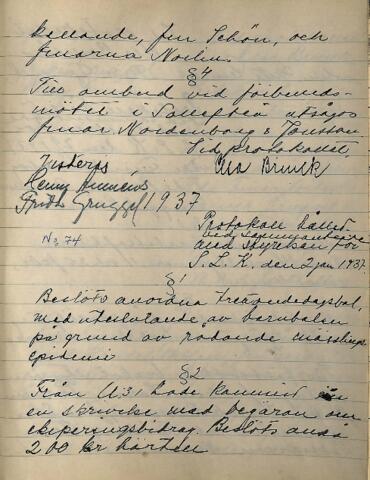 kallande, fru Schön, och
fruarna Norlin.
§ 4
Till ombud vid förbunds-
mötet i Sollefteå utsågos
fruar Nordenborg & Jonsson
Vid protokollet,
Elsa Brunck
Justeras
1937
No 74
Protokoll hållet
vid sammanträde
med styrelsen för
S. L. K. den 2 jan 1937.
§ 1
Beslöts anordna trettondedagsbal,
med uteslutande av barnbalen
på grund av rådande mässlings-
epidemi
§ 2
Från U31 hade kommit in
en skrivelse med begäran om
ekiperingsbidrag. Beslöts anslå
200 kr härtill